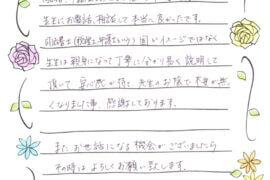 先生にお電話、相談して本当に良かったです。
司法書士(税理士、弁護士という)固いイメージではなく
先生は親身になって丁寧に分かり易く説明して
頂いて安心感が持て、先生のお陰で不安が無
くなりました事、感謝しております。
またお世話になる機会がございましたら
その時はよろしくお願い致します。